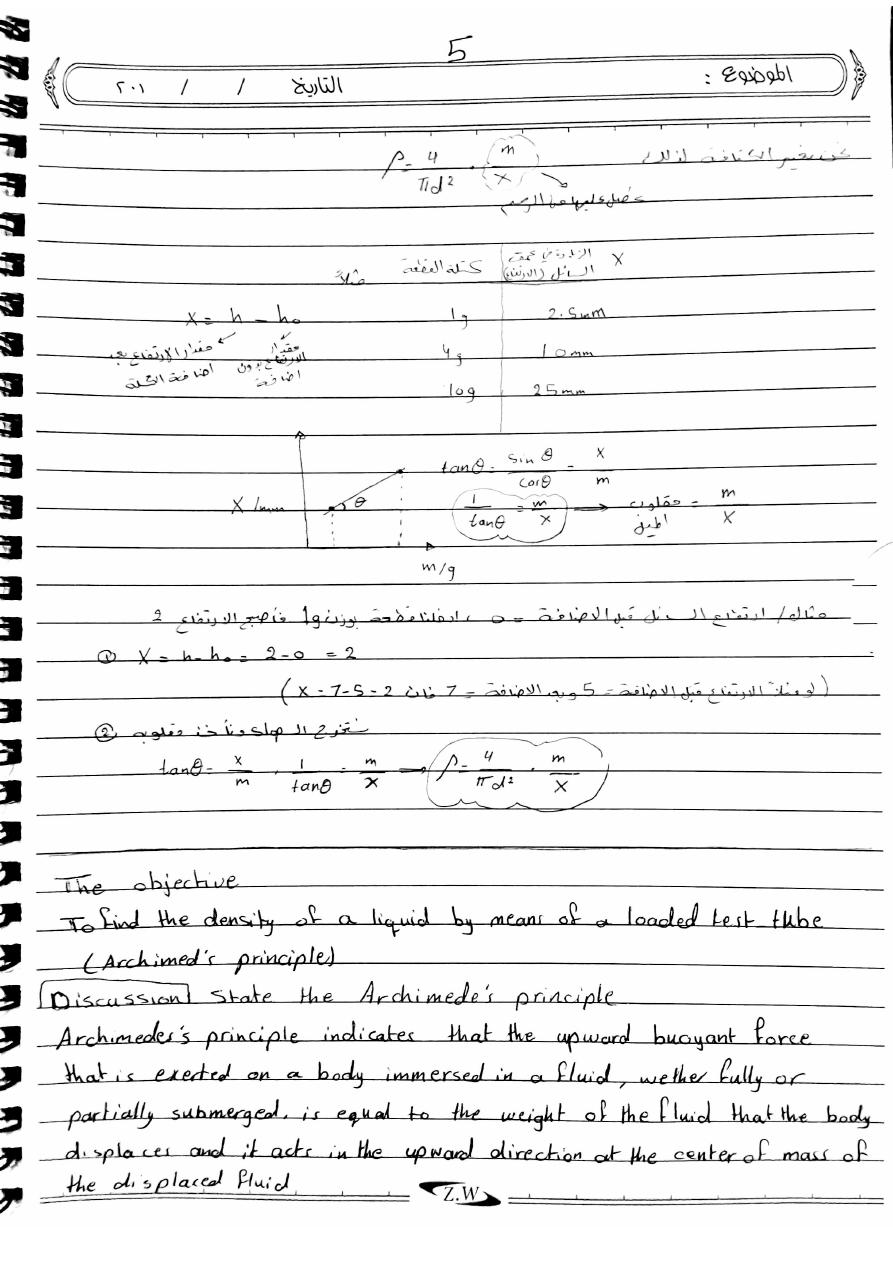 5
الموضوع :
التاريخ / / ٢٠١
ρ = 4/πd² · m/x
نحصل عليها من الرسم
X الزيادة في عمق السائل (الارتفاع) كتلة القطعة مثلاً
1g 2.5mm
4g 10mm
10g 25mm
X = h - h₀
مقدار الارتفاع بعد اضافة الكتلة
مقدار الارتفاع بدون اضافة
tanθ = sinθ/cosθ = x/m
X /mm θ
1/tanθ = m/x → مقلوب الميل = m/x
m/g
مثال / ارتفاع السائل قبل الاضافة = 0 ، ادخلنا قطعة بوزن 1g فأصبح الارتفاع 2
① X = h - h₀ = 2 - 0 = 2
(لو مثلاً الارتفاع قبل الاضافة = 5 وبعد الاضافة = 7 فان X = 7-5 = 2)
② نستخرج الـ slope ونأخذ مقلوبه
tanθ = x/m , 1/tanθ = m/x → ρ = 4/πd² · m/x
The objective
To find the density of a liquid by means of a loaded test tube
(Archimed's principle)
Discussion State the Archimede's principle
Archimedes's principle indicates that the upward buoyant force
that is exerted on a body immersed in a fluid, wether fully or
partially submerged, is equal to the weight of the fluid that the body
displaces and it acts in the upward direction at the center of mass of
the displaced fluid
Z.W